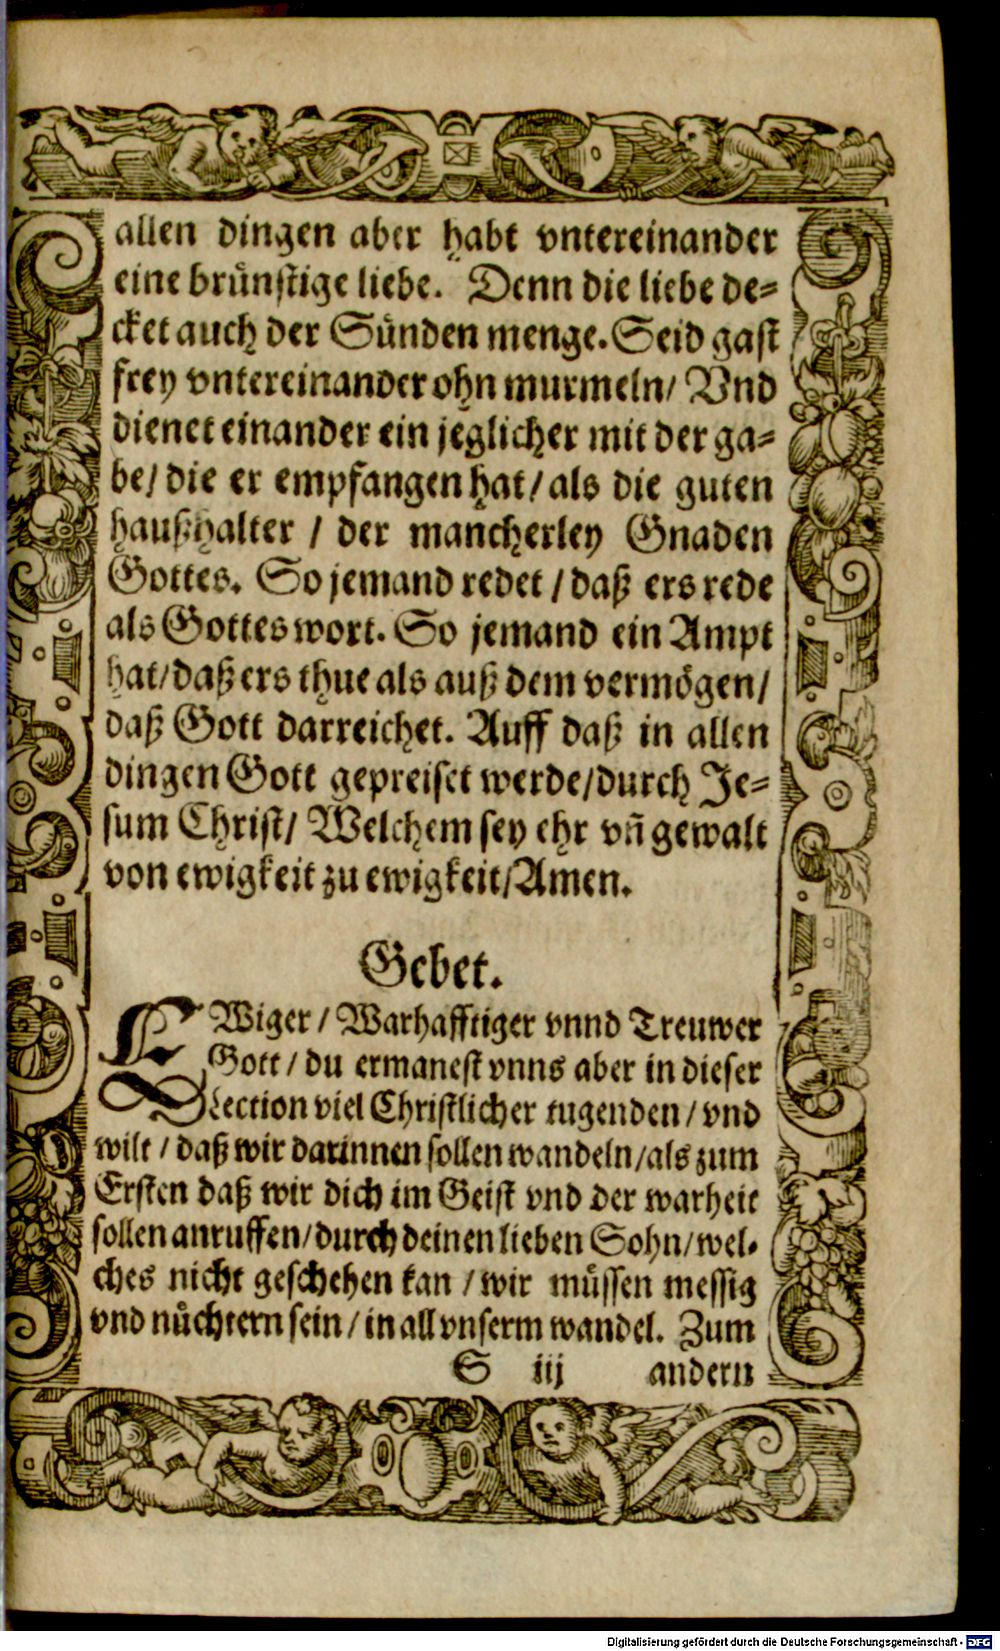 allen dingen aber habt vntereinander
eine brünstige liebe. Denn die liebe de=
cket auch der Sünden menge. Seid gast
frey vntereinander ohn murmeln/ Vnd
dienet einander ein jeglicher mit der ga=
be/ die er empfangen hat/ als die guten
haußhalter / der mancherley Gnaden
Gottes. So jemand redet / daß ers rede
als Gottes wort. So jemand ein Ampt
hat/ daß ers thue als auß dem vermögen/
daß Gott darreichet. Auff daß in allen
dingen Gott gepreiset werde/durch Je=
sum Christ/ Welchem sey ehr vñ gewalt
von ewigkeit zu ewigkeit/Amen.
Gebet.
EWiger / Warhafftiger vnnd Treuwer
Gott / du ermanest vnns aber in dieser
Lection viel Christlicher tugenden / vnd
wilt / daß wir darinnen sollen wandeln/als zum
Ersten daß wir dich im Geist vnd der warheit
sollen anruffen/durch deinen lieben Sohn/wel=
ches nicht geschehen kan / wir müssen messig
vnd nüchtern sein / in all vnserm wandel. Zum
S iij andern
Digitalisierung gefördert durch die Deutsche Forschungsgemeinschaft - DFG